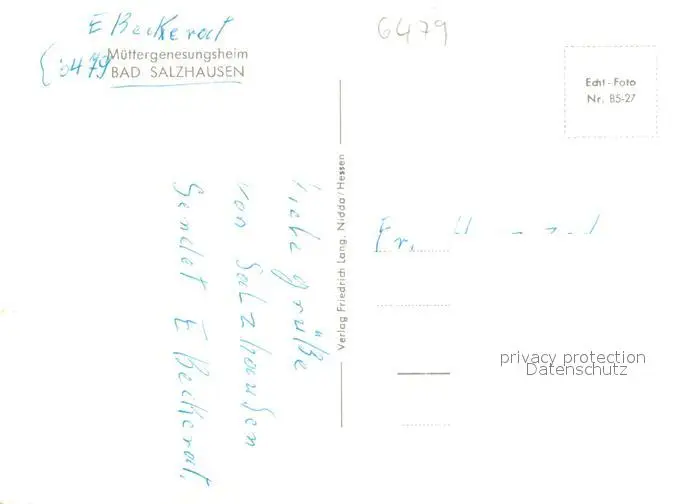 E Beckerat
6479
Müttergenesungsheim
(6479 BAD SALZHAUSEN
Echt-Foto
Nr. B5-27
Liebe grüße
von Salzhausen
Sendet E Beckerat.
Verlag Friedrich Lang, Nidda/Hessen
Fr.
privacy protection
Datenschutz